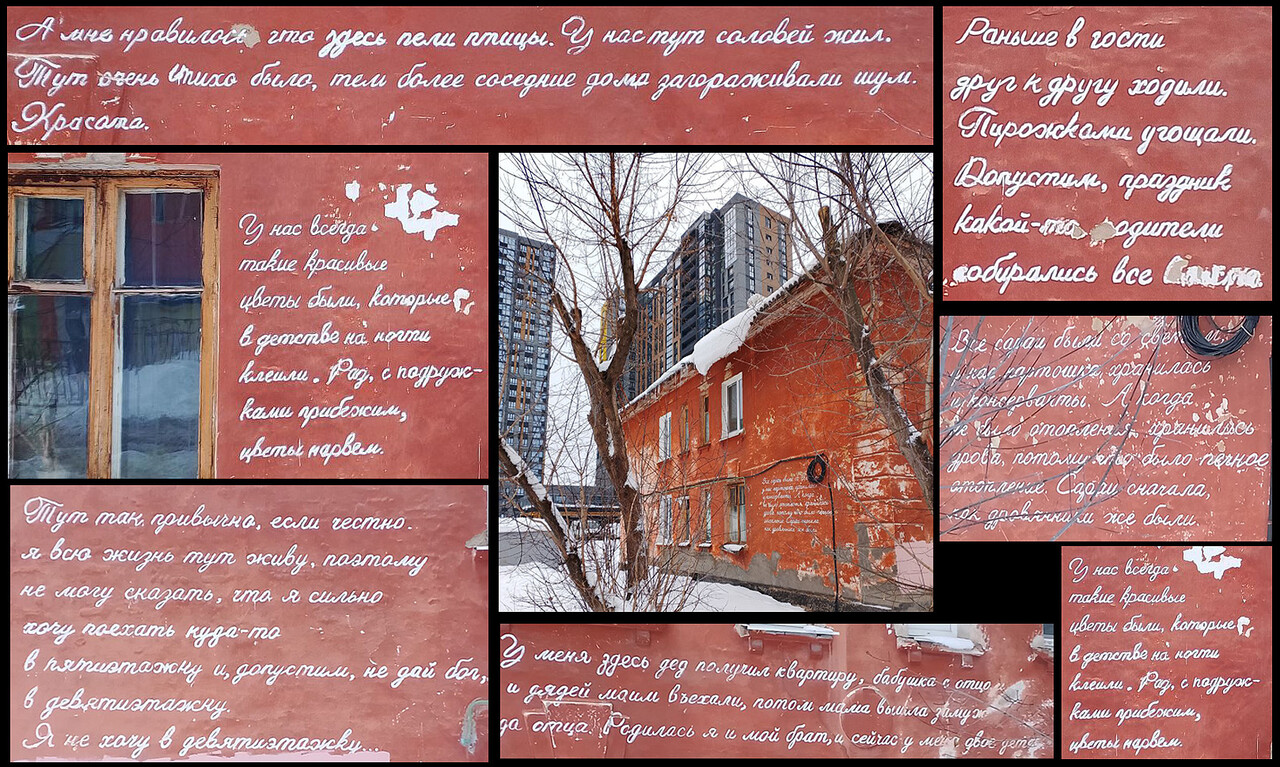 А мне нравилось, что здесь пели птицы. У нас тут соловей жил.
Тут очень тихо было, тем более соседние дома загораживали шум.
Красота.
Раньше в гости
друг к другу ходили.
Пирожками угощали.
Допустим, праздник
какой-то одители
собирались все
У нас всегда
такие красивые
цветы были, которые
в детстве на ногти
клеили. Раз, с подруж-
ками прибежим,
цветы нарвем.
Все сараи были со
у нас картошка хранилась
и консерванты. А когда
не было отопления, хранились
дрова, потому что было печное
отопление. Сараи сначала,
как дровянники же были.
Тут так, привычно, если честно.
я всю жизнь тут живу, поэтому
не могу сказать, что я сильно
хочу поехать куда-то
в пятиэтажку и, допустим, не дай бог,
в девятиэтажку.
Я не хочу в девятиэтажку...
У меня здесь дед получил квартиру, бабушка с отцо
и дядей маим въехали, потом мама вышла замуж
да отца. Родилась я и мой брат, и сейчас у меня двое дете
У нас всегда
такие красивые
цветы были, которые
в детстве на ногти
клеили. Раз, с подруж-
ками прибежим,
цветы нарвем.